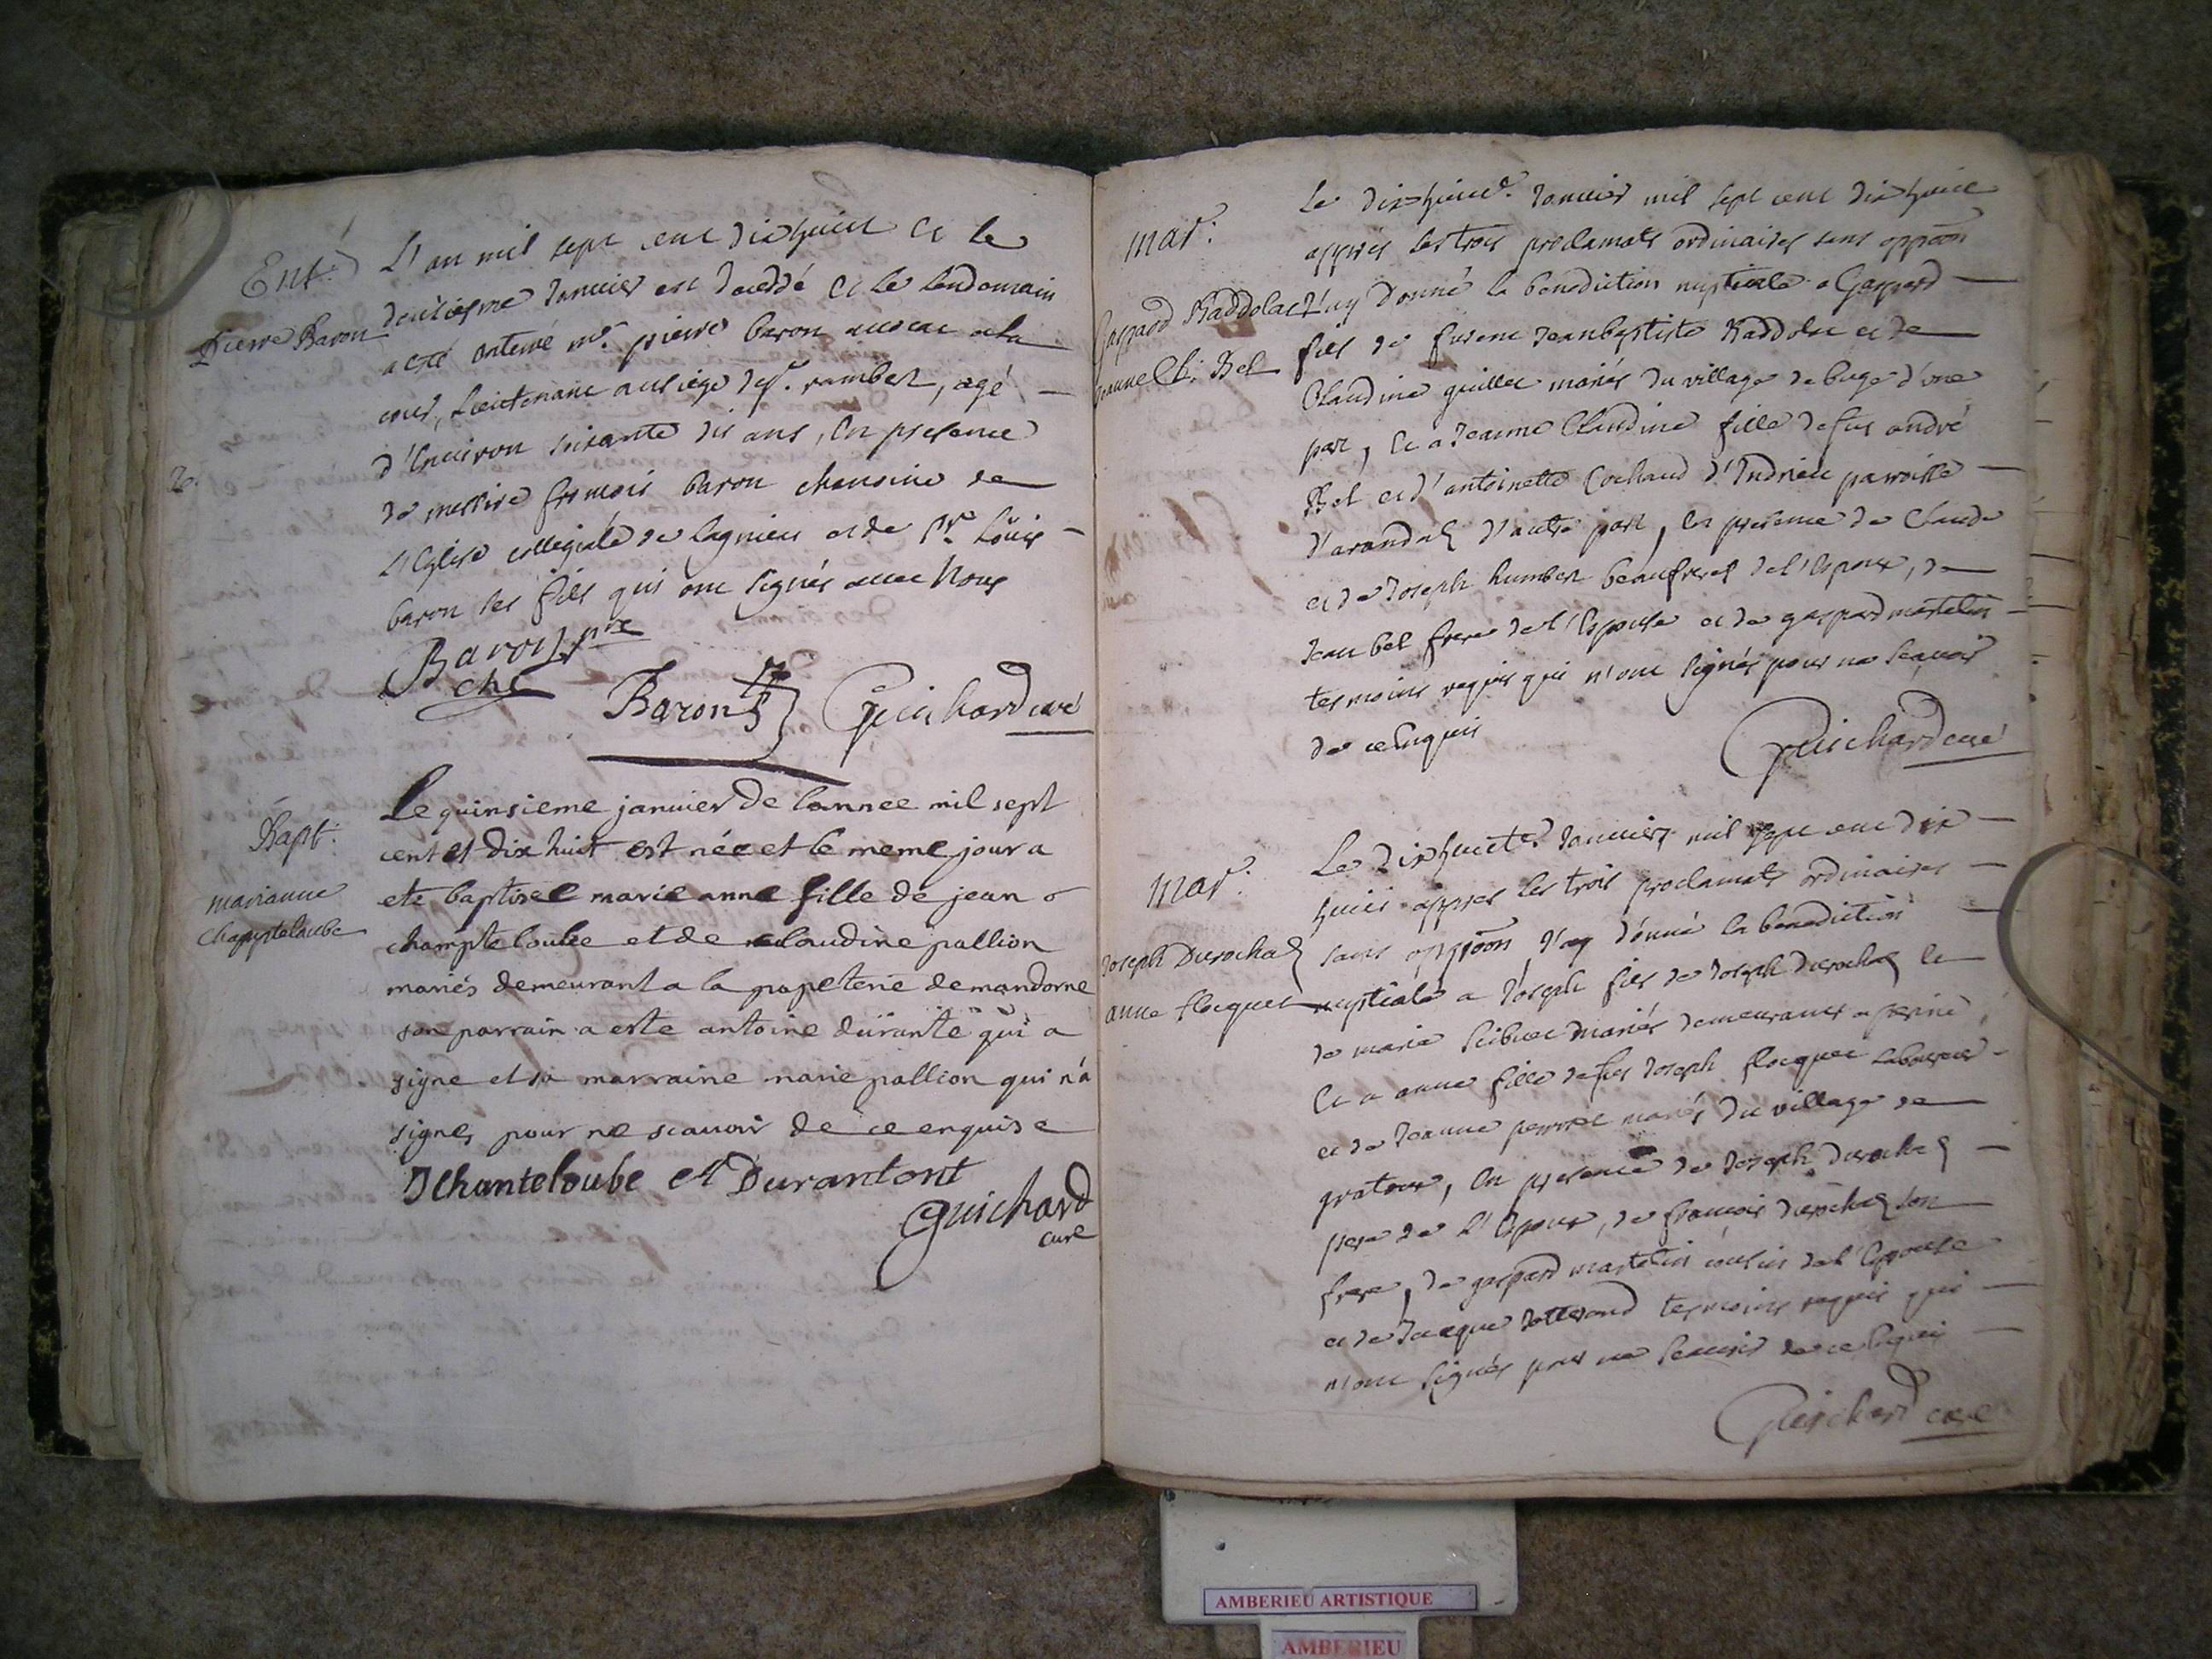 Ent.
Pierre Baron
L'an mil sept cent dixhuict et le
deuziesme Janvier est decedé et le lendemain
a esté enterré mr. pierre baron avocat a la
cour, Lieutenant au siege de st. rambert, agé
d'Environ soixante dix ans, En presence
de messire francois baron chanoine de
L'Eglise collegiale de lagnieu et de Sr. Loüis
baron ses fils qui ont signés avec Nous
Baron ptre
che
Baron Guichard curé
Bapt.
marianne
Champteloube
Le quinsieme janvier de lannee mil sept
cent et dix huit est née et le meme jour a
ete baptisee marie anne fille de jean
champteloube et de claudine pallion
mariés demeurant a la papeterie de mandorne
son parrain a este antoine durante qui a
signe et sa marraine marie pallion qui n'a
signe, pour ne scavoir de ce enquise
J Chanteloube et Durantont
Guichard
curé
mar.
Gaspard Raddolac
Jeanne Cl. Bel
Le dixhuict. Janvier mil sept cent dixhuict
appres les trois proclamats ordinaires sans oppoõn
J'ay Donné la benediction nuptiale a Gaspard
fils de furent Jeanbaptiste Raddolac et de
Claudine guillet mariés du village de buge d'une
part, Et a Jeanne Claudine fille de fus andré
Bel et d'antoinette Cochaud d'Indrieu parroisse
d'arandaz d'autre part, En presence de Claude
et de Joseph humbert beaufreres de l'Espoux, de
Jean bel frere de l'Espouse et de gaspard martelin
tesmoins requis qui n'ont signés pour ne scavoir
de ce Enquis
Guichard curé
mar.
Joseph Durochaz
anne flocquet
Le dixhuicte. Janvier mil sept cent dix
huict appres les trois proclamats ordinaires
sans oppoõn J'ay donné la benediction
nuptiale a Joseph fils de Joseph durochaz et
de marie mariés demeurants a
Et a anne fille de fus Joseph flocquet Laboureur
et de Jeanne perret mariés du village de
gratoux, En presence de Joseph durochaz
pere de L'Espoux, de francois durochaz son
frere, de gaspard martelin cousin de l'Espouse
et de Jacque tesmoins requis qui
n'ont signés pour ne scavoir de ce Enquis
Guichard curé
AMBERIEU ARTISTIQUE
AMBERIEU